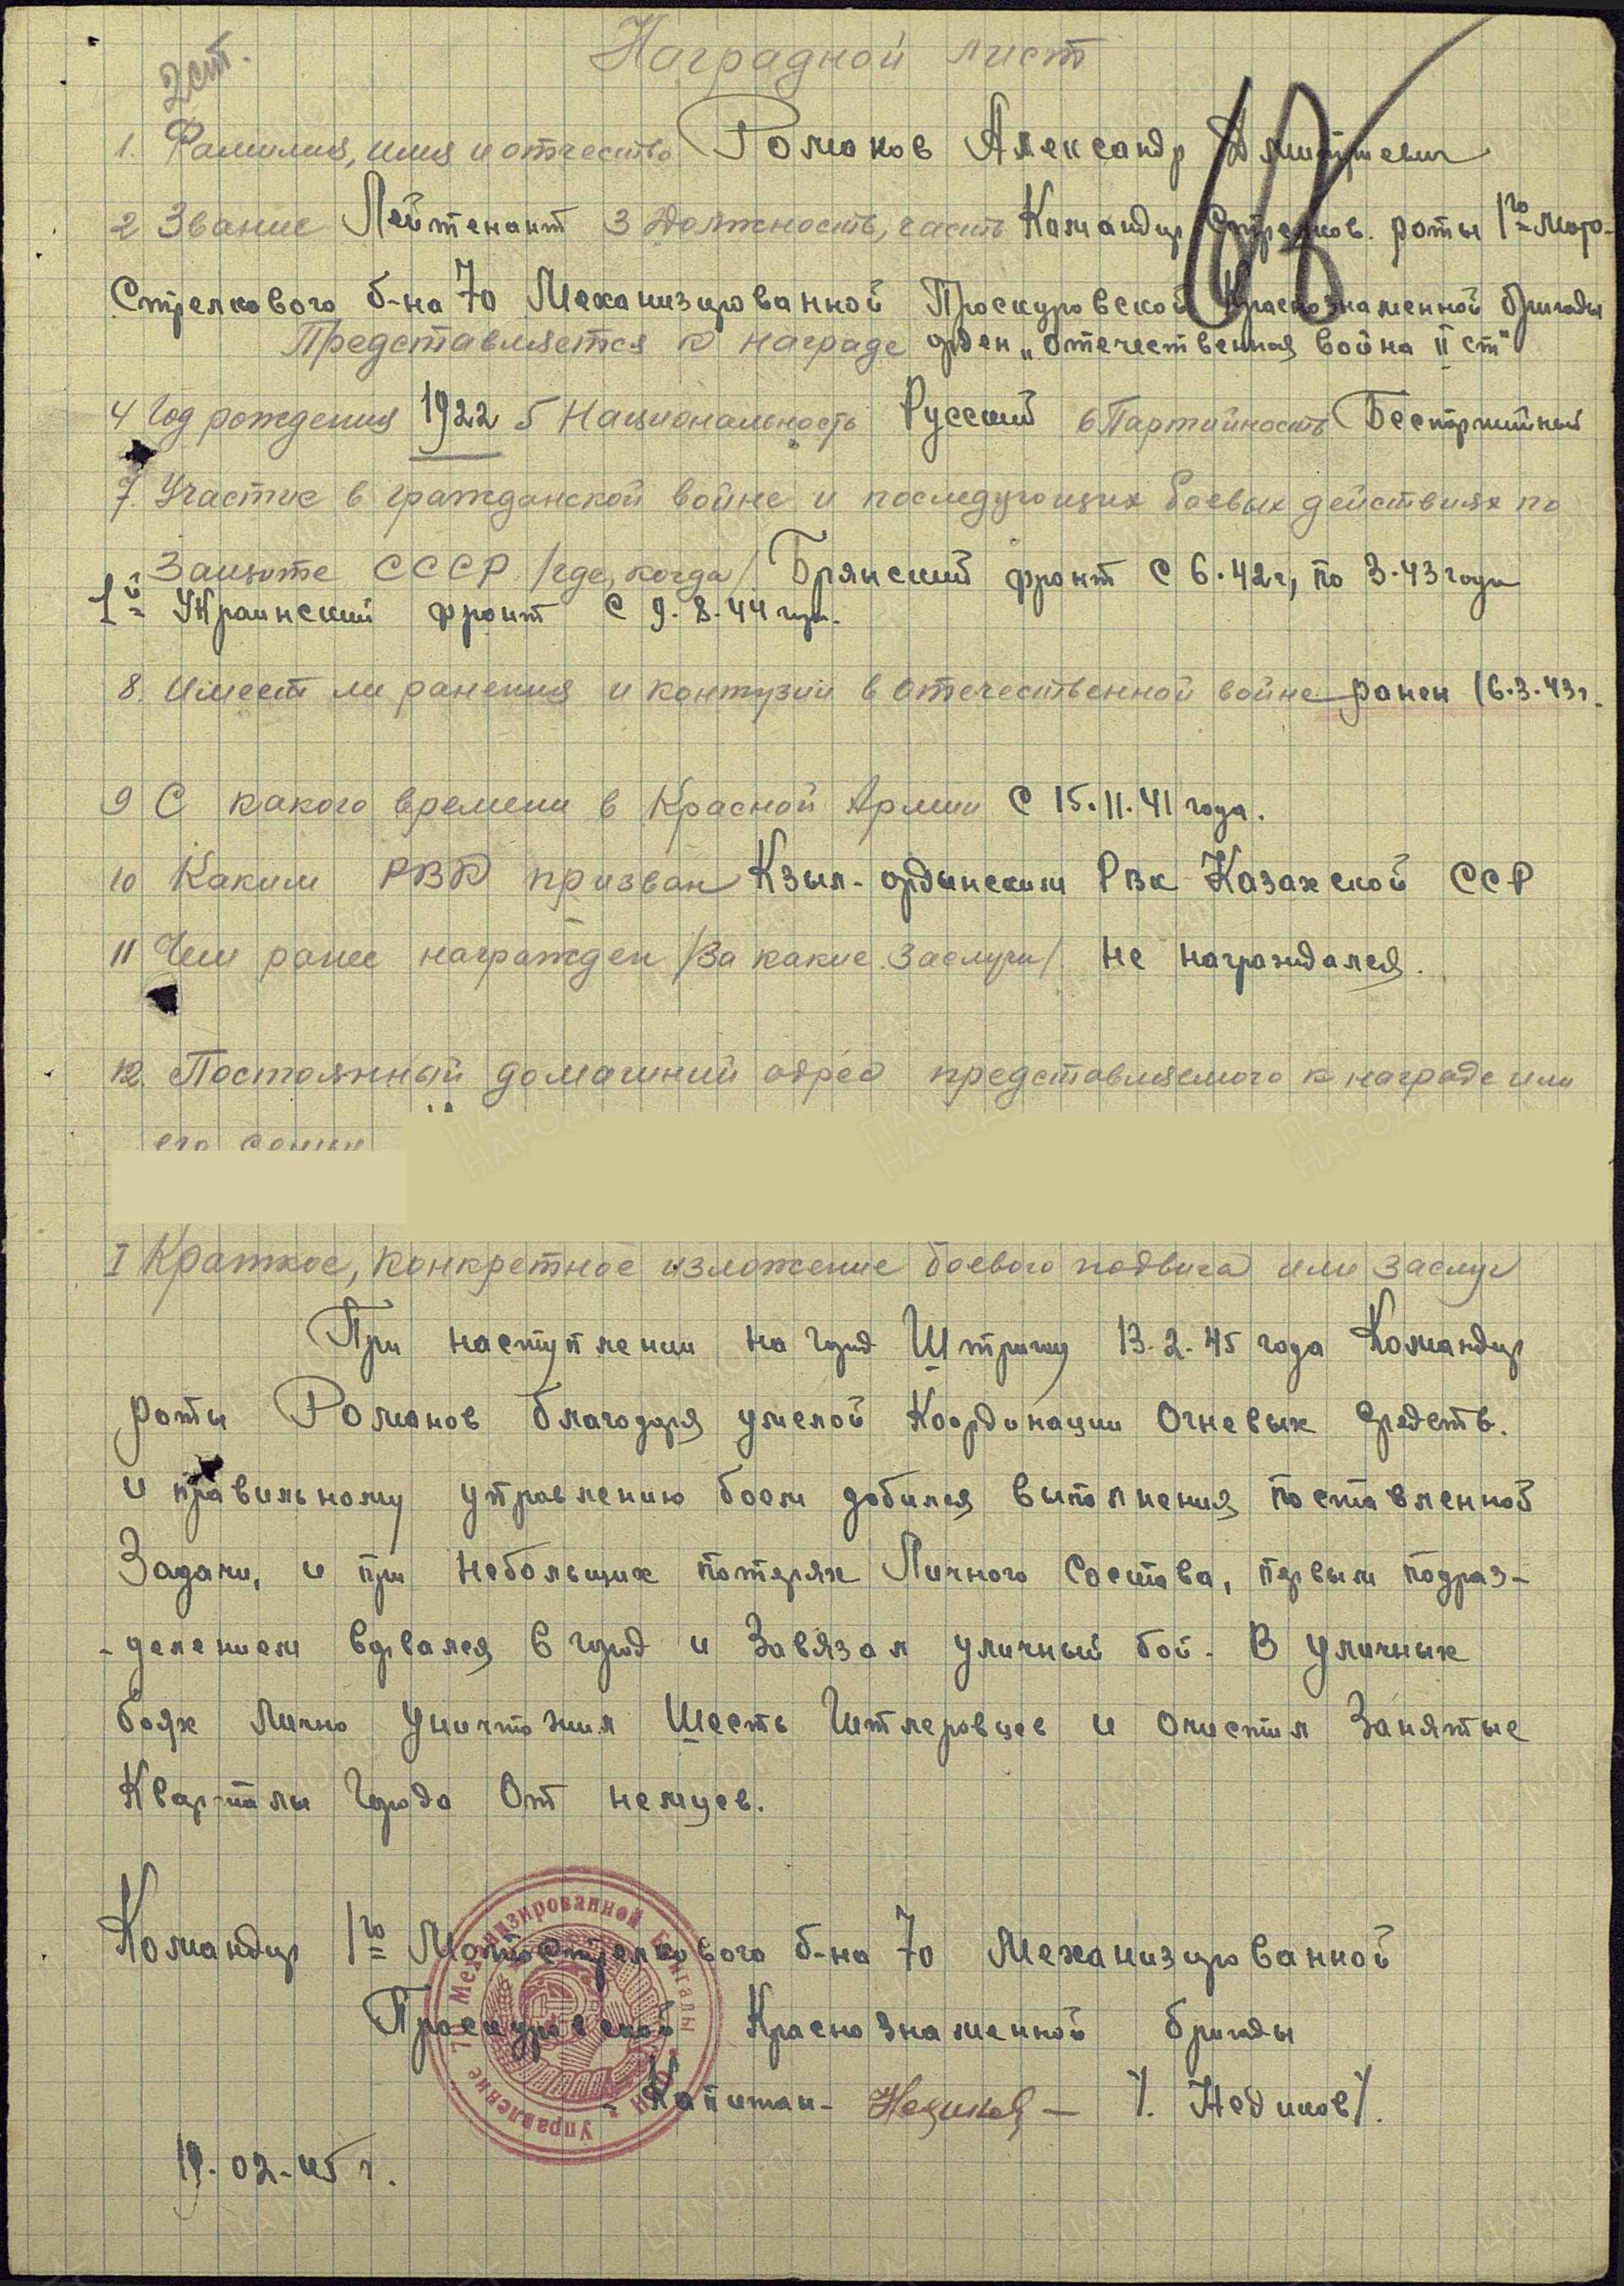 2 ст.
Наградной лист
1. Фамилия, имя и отчество Романов Александр Дмитриевич
2 Звание Лейтенант 3 Должность, часть Командир Стрелков. роты 1го Мото-
Стрелкового б-на 70 Механизированной Проскуровской Краснознаменной бригады
Представляется к награде орден „Отечественная война II ст"
4 Год рождения 1922 5 Национальность Русский 6 Партийность Беспартийный
7. Участие в гражданской войне и последующих боевых действиях по
Защите СССР /где, когда/ Брянский фронт с 6.42г, по 3.43 года
1й Украинский фронт с 9.8.44 года.
8. Имеет ли ранения и контузии в отечественной войне ранен 16.3.43г.
9 С какого времени в Красной Армии с 15.11.41 года.
10 Каким РВК призван Кзыл-ордынским Рвк Казахской ССР
11 Чем ранее награжден /За какие заслуги/ не награждался.
12. Постоянный домашний адрес представляемого к награде или
его семьи
I Краткое, конкретное изложение боевого подвига или заслуг
При наступлении на город Штригау 13.2.45 года Командир
роты Романов благодаря умелой Координации Огневых средств.
и правильному управлению боем добился выполнения поставленной
Задачи, и при небольших потерях Личного Состава, первым подраз-
-делением ворвался в город и Завязал уличный бой. В уличных
боях Лично Уничтожил Шесть Гитлеровцев и очистил Занятые
Кварталы Города От немцев.
Командир 1го Мотострелкового б-на 70 Механизированной
Проскуровской Краснознаменной бригады
- Капитан - /. Недиков/.
19.02.45 г.
Управление 70 Механизированной Бригады